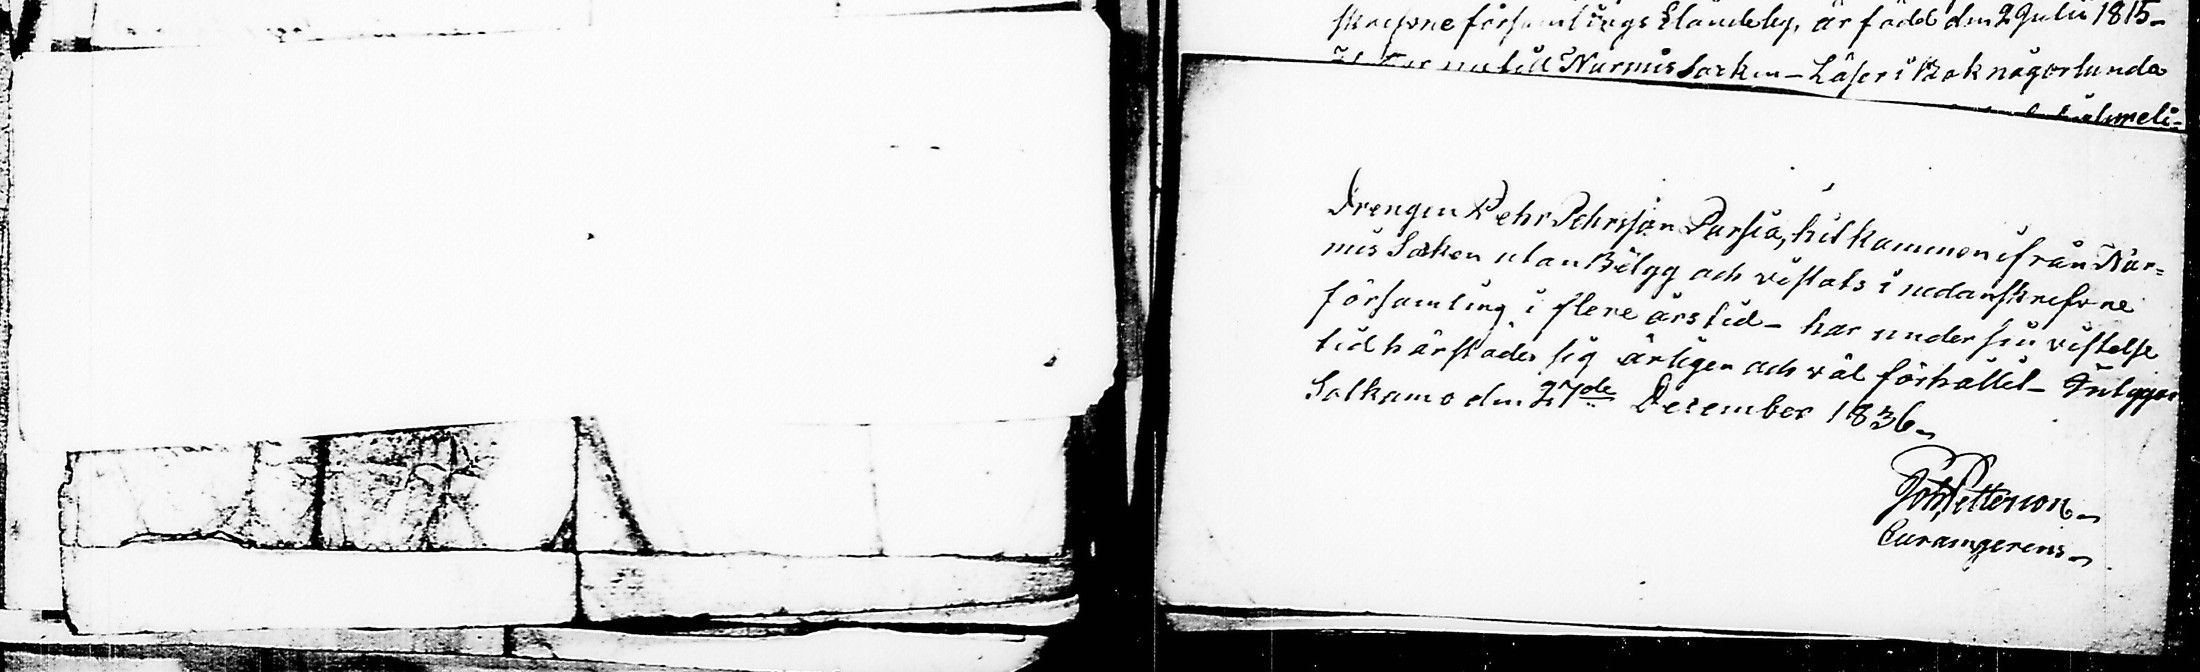 skrefvne församlings Eländehy, är född den 2 Julii 1815-
till Nurmis Socken - Läser i Bok någorlunda
Drengen Pehr Pehrsson Pursia, hit kommen ifrån Nur=
mis Socken utan Bétyg och vistats i nedanskrefvne
församling i flere års tid - har under sin vistelse
tid härstädes sig ärligen och väl förhållit - Intygar
Sotkamo den 27de December 1836 -
Joh Petterson -
Curamgerens -